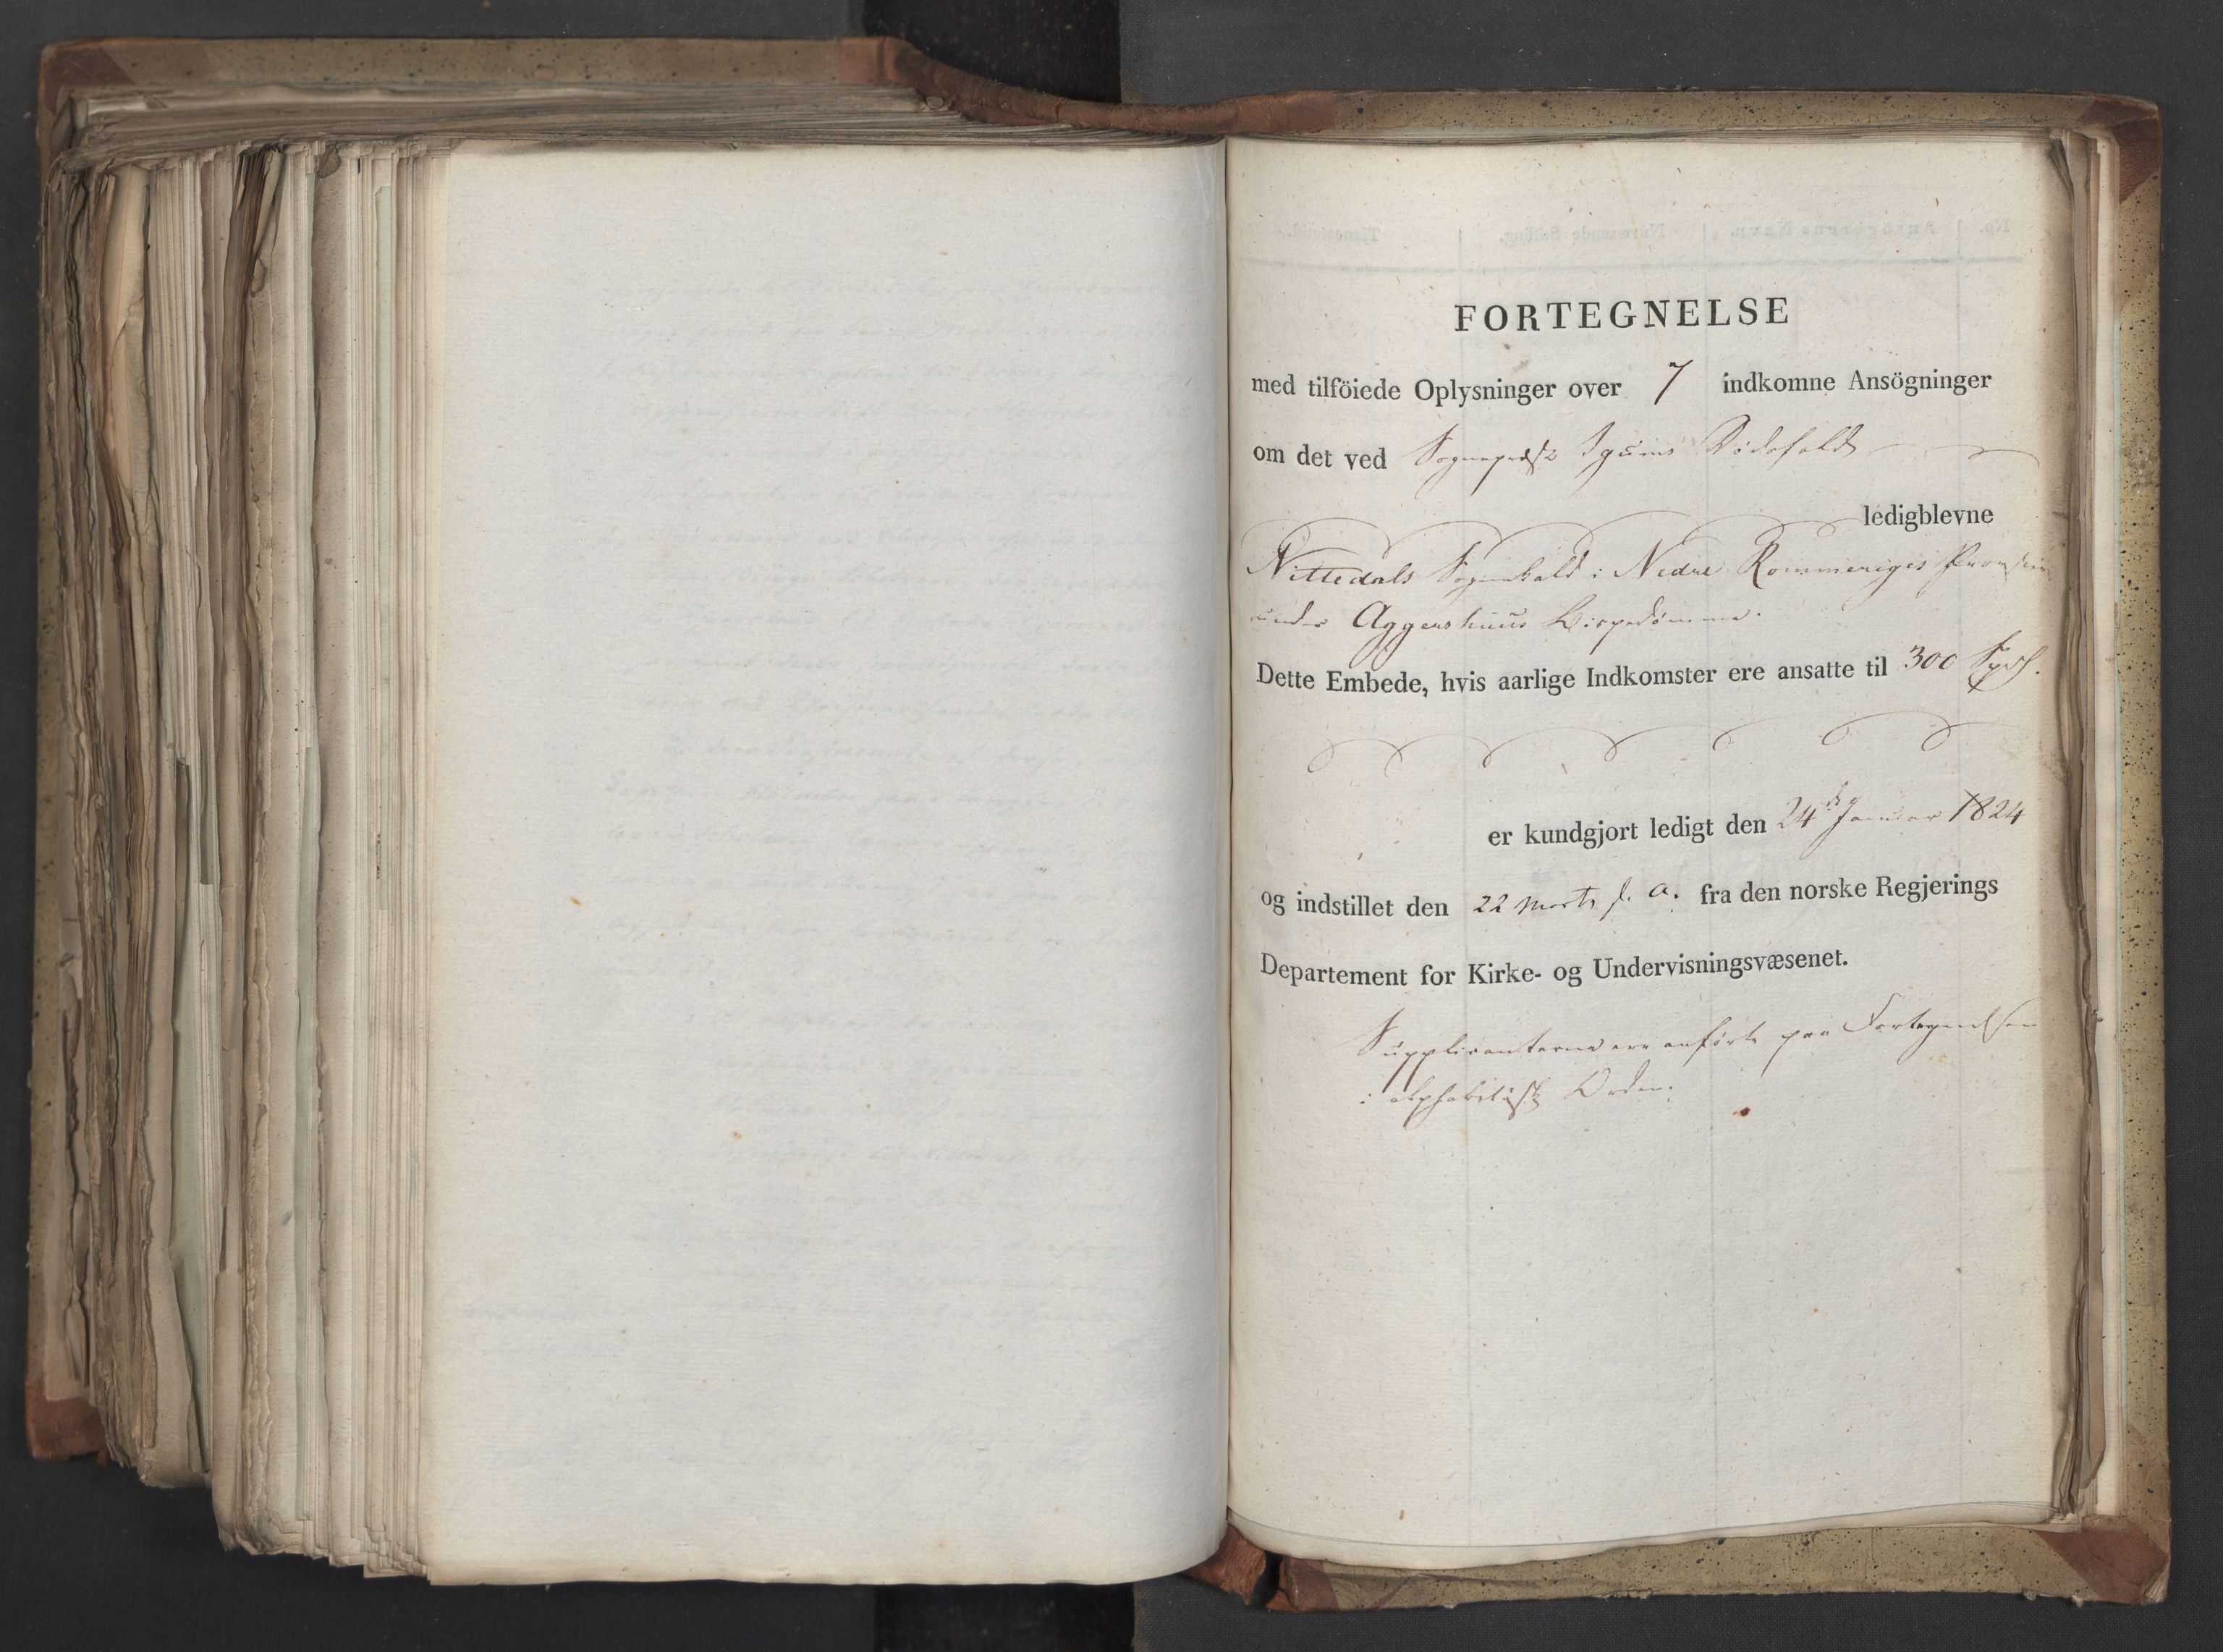 FORTEGNELSE
med tilföiede Oplysninger over 7 indkomne Ansögninger
om det ved Sognepræst Dødsfald
ledigblevne
Nittedals Sognekald i Nedre Rommeriges Provstie
under Aggershuus Bispedømme.
Dette Embede, hvis aarlige Indkomster ere ansatte til 300 Spd.
er kundgjort ledigt den 24de Januar 1824
og indstillet den 22 Marts s. a. fra den norske Regjerings
Departement for Kirke- og Undervisningsvæsenet.
Supplicanterne ere anførte paa Fortegnelsen
i alphabetisk Orden.